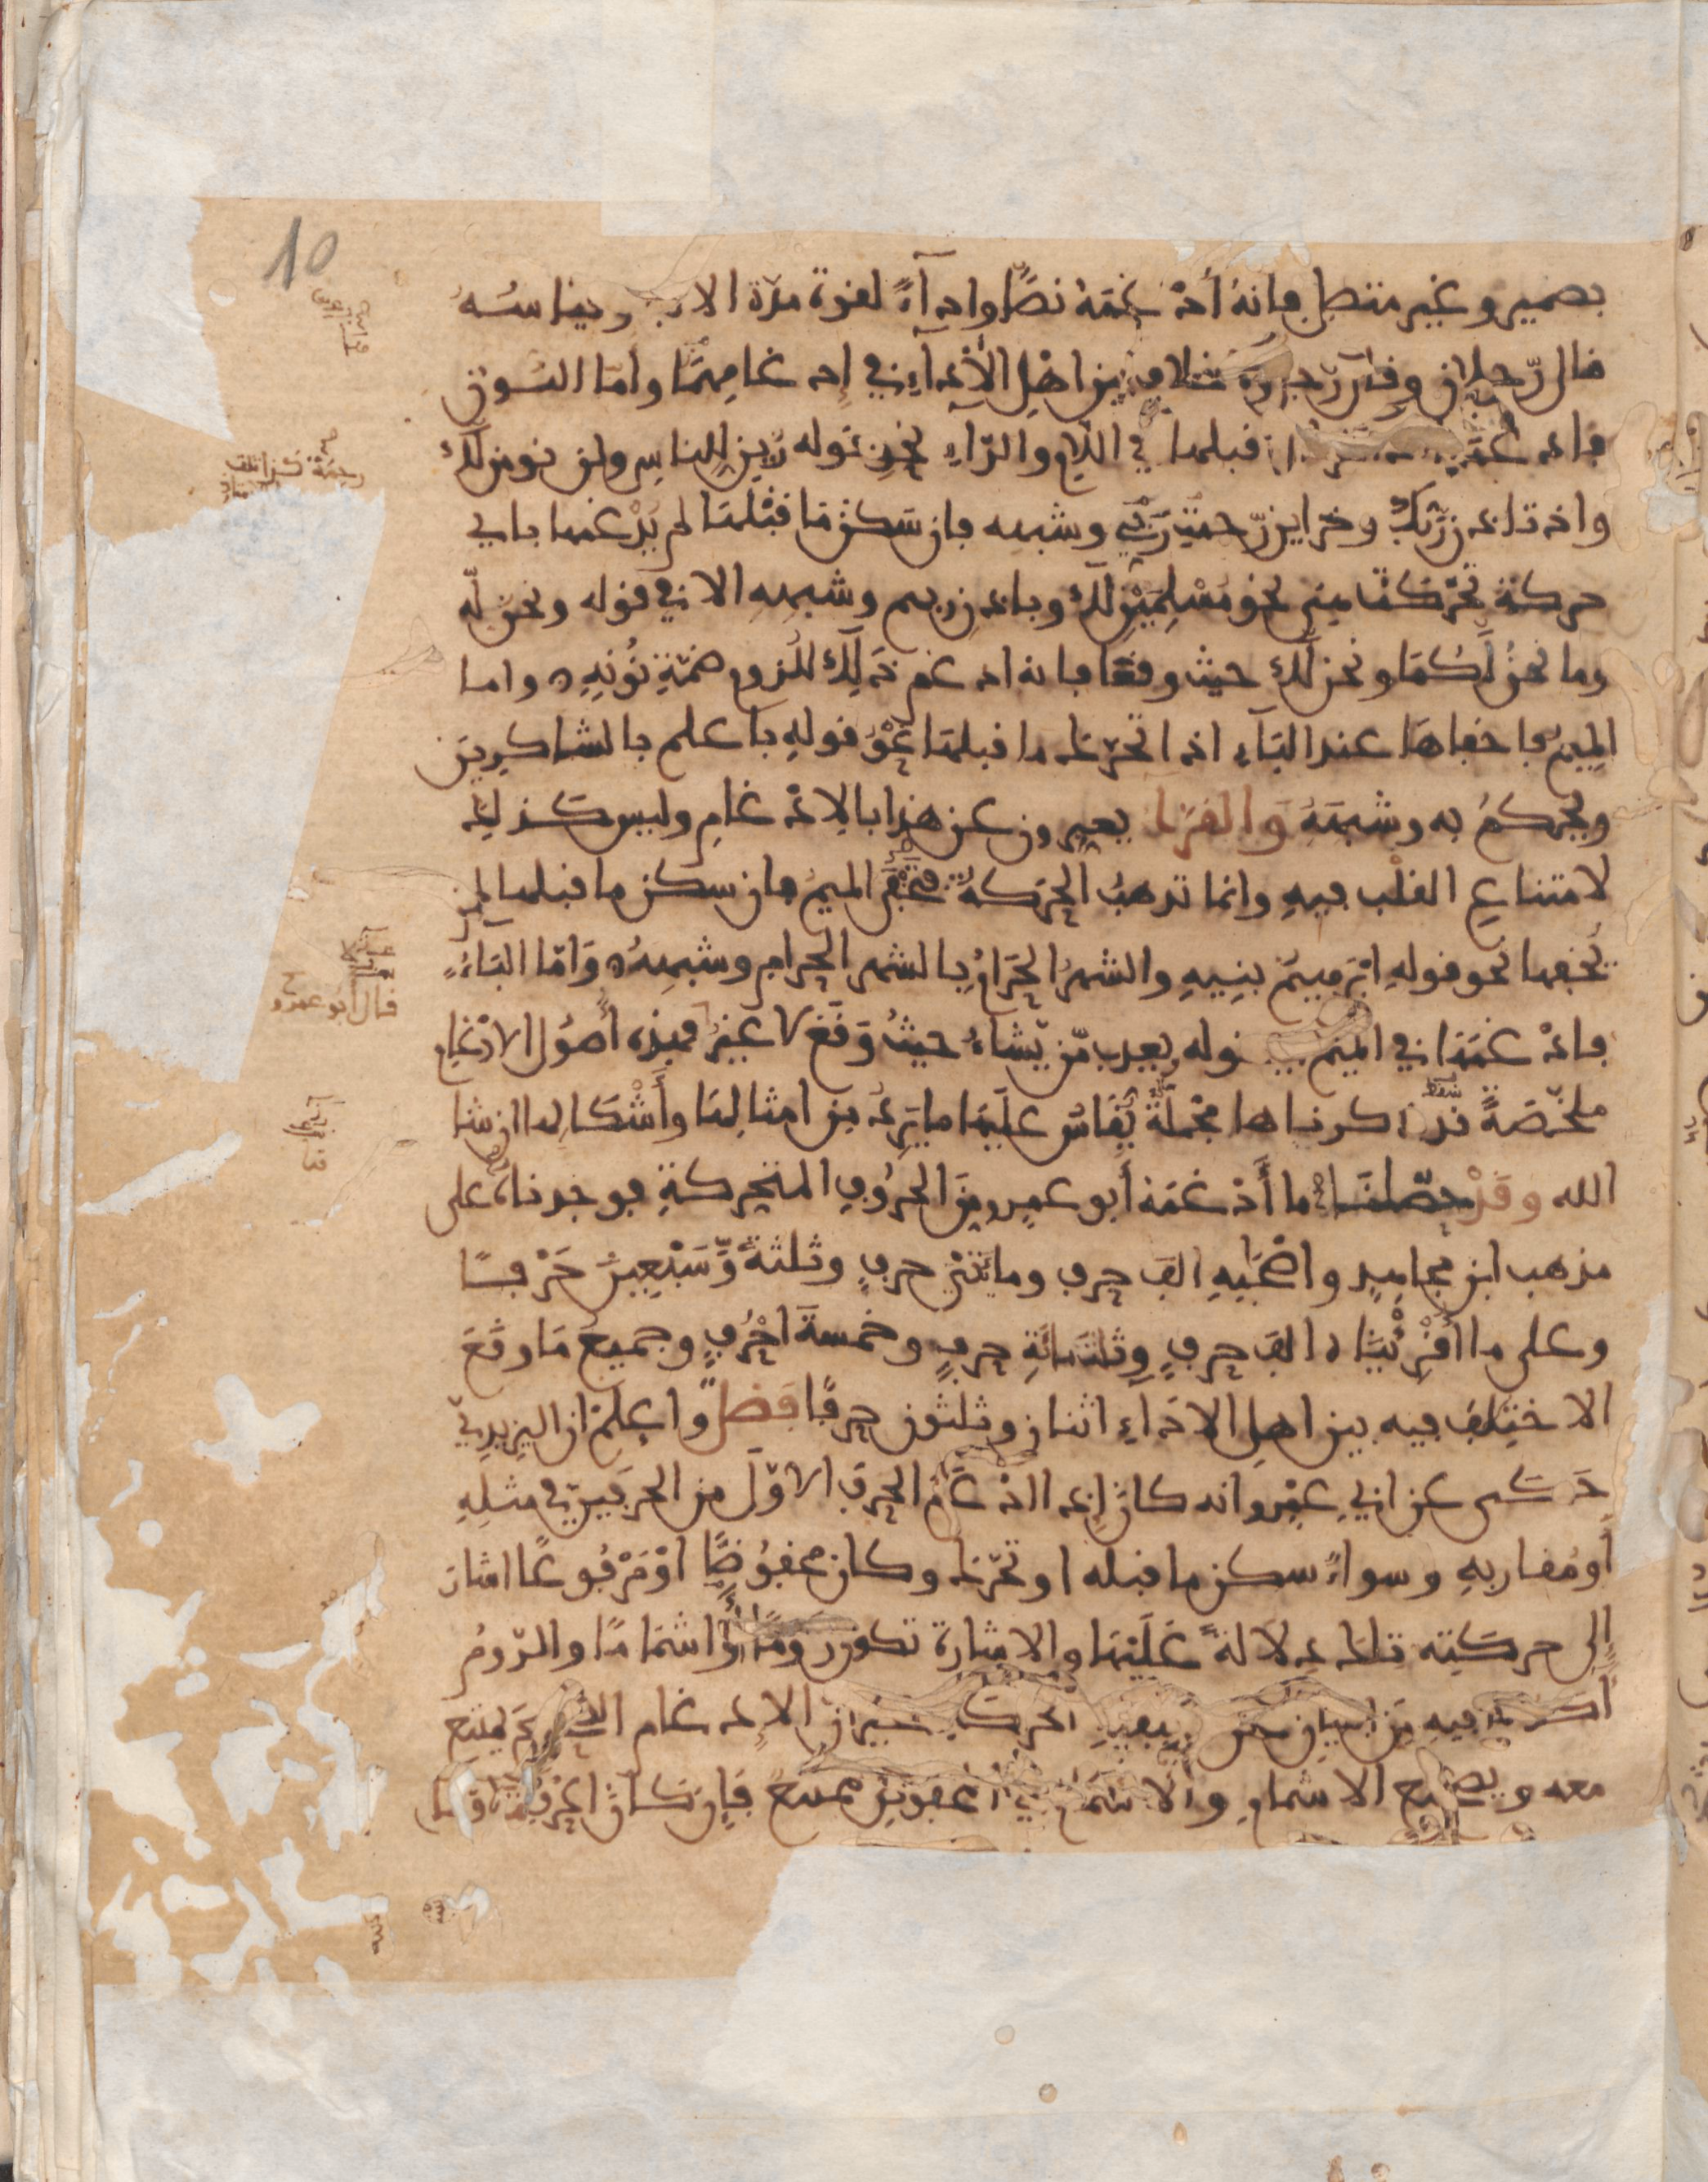 10
بضمير وغير متصل فانه أدغمه نصًّا واداءً لقوة مدة الالف وقياسه
قال رّجلان وقال رّجل ولا خلاف بين اهل الأداء في إدغامهما وأما النون
فادغمها قبلها في اللام والراء نحو قوله زين للناس ولن نومن لك
واذ تاذن ربك وخزاين رّحمة ربي وشبهه فإن سكن ما قبلها لم يدغمها باي
حركة تحركت هي نحو مسلمين لك وباذن ربهم وشبهه الا في قوله ونحن له
وما نحن لكما ونحن لك حيث وقعا فانه ادغم ذلك للزوم ضمة نونه واما
الميم فاخفاها عند الباء اذا تحرك ما قبلها نحو قوله باعلم بالشاكرين
ويحكم به وشبهه والقراء يعبرون عن هذا بالادغام وليس كذلك
لامتناع القلب فيه وانما تذهب الحركة فتخفى الميم فان سكن ما قبلها لم
يخفها نحو قوله ابرهيم بنيه والشهر الحرام بالشهر الحرام وشبهه واما الباء
فادغمها في الميم قوله يعذب من يشاء حيث وقع لا غير فهذه أصول الادغام
ملخصة قد ذكرناها مجملة يقاس عليها ما يرد من امثالها وأشكالها ان شا
الله وقد حصلنا ما أدغمه أبو عمرو من الحروف المتحركة فوجدناه على
مذهب ابن مجاهد واصحابه الف حرف ومايتي حرف وثلثة وسبعين حرفا
وعلى ما اقرئناه الف حرف وثلثمائة حرف وخمسة احرف وجميع ما وقع
الاختلف فيه بين اهل الاداء اثنان وثلثون حرفا فصل واعلم ان اليزيدي
حكى عن ابي عمرو انه كان إذا ادغم الحرف الاول من الحرفين في مثله
أو مقاربه وسواء سكن ما قبله او تحرك وكان مخفوضا او مرفوعا اشار
إلى حركته تلك دلالة عليها والاشارة تكون روما أو اشماما والروم
اكد لما فيه من البيان عن كيفية الحركة غير ان الادغام الصحيح يمتنع
معه ويصح الاشمام والاشمام في المخفوض ممتنع فإن كان الحرف
قال أبو عمرو